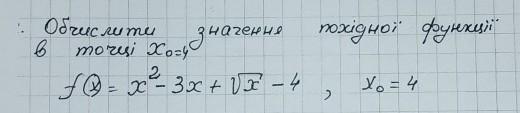 : Обчислити значення похідної функції
в точці x₀=4
f(x) = x² - 3x + √x - 4 , x₀ = 4